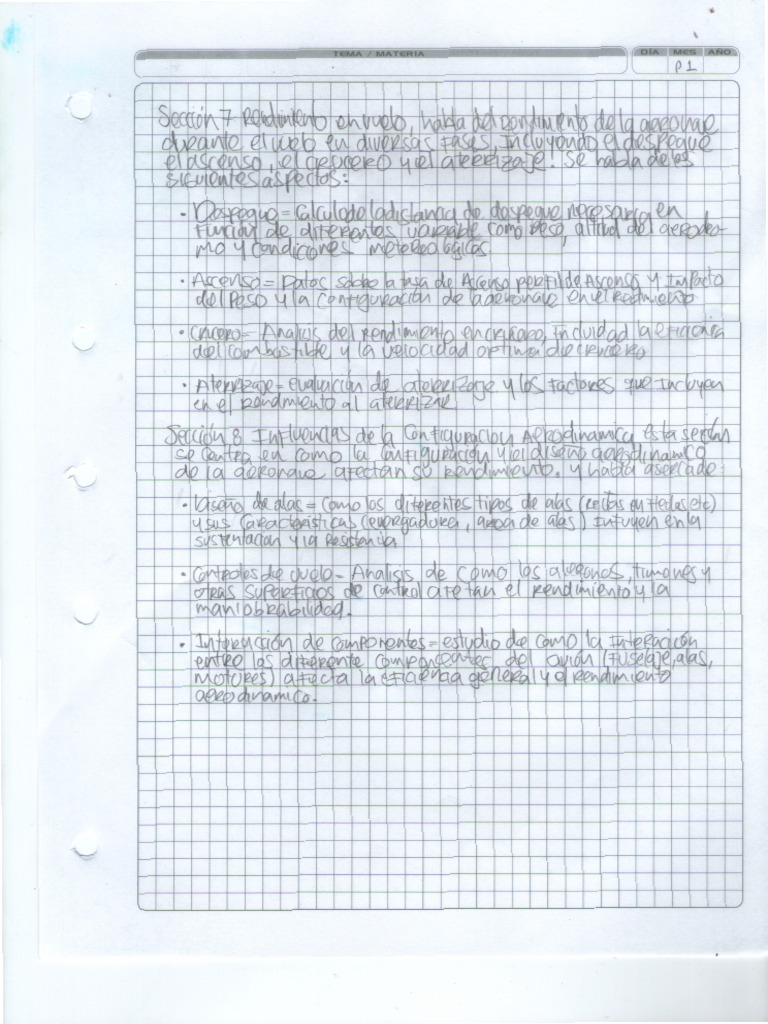 TEMA / MATERIA
DÍA MES AÑO
P1
Sección 7 Rendimiento en vuelo, habla del rendimiento de la aeronave
durante el vuelo en diversas fases, Incluyendo el despegue
el ascenso, el crucero y el aterrizaje! Se habla de los
siguientes aspectos:
• Despegue = Calculo de la distancia de despegue necesaria en
función de diferentes variable como peso, altitud del aerodro-
mo y condiciones metereologicas
• Ascenso = Datos sobre la tasa de Ascenso perfil de Ascenso y Impacto
del Peso y la configuración de la aeronave en el redimiento
• Crucero = Analisis del rendimiento en crucero, incluida la eficiencia
del combustible y la velocidad optima de crucero
• Aterrizaje = evaluación de aterrizaje y los factores que Incluyen
en el rendimiento al aterrizar
Sección 8 Influencias de la Configuracion Aerodinamica esta sección
se centra en como la configuración y el diseño aerodinamico
de la aeronave afectan su rendimiento. y habla aserca de:
• Diseño de alas = Como los diferentes tipos de alas (rectas, en flechas, etc)
y sus características (envergadura, area de alas) Influyen en la
sustentacion y la Resistencia
• Controles de vuelo = Analisis de como los alerones, timones y
otras superficios de control afetan el rendimiento y la
maniobrabilidad.
• Interacción de componentes = estudio de como la Interación
entre los diferente componentes del avión (fuselaje, alas,
motores) afecta la eficiencia general y el rendimiento
aerodinamico.